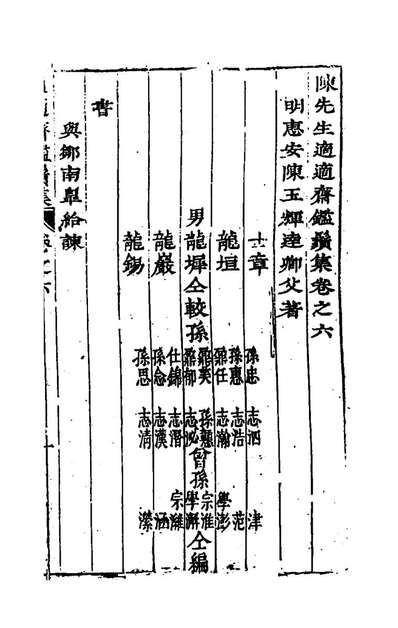 陳先生適適齋鑑鬚集卷之六
明惠安陳玉輝達卿父著
士章 孫忠 志泗 津
龍垣 孫惠 志浩 范
任 志瀚 學澎
男龍墀仝較孫 英 孫 曾孫 宗淮 仝編
郁 志泌 學澥
龍巖 仕錦 志潛 宗
孫念 志漢 涵
龍錫 孫思 志清 濴
書
與鄒南皐給諫
適齋鑑鬚集 卷之六